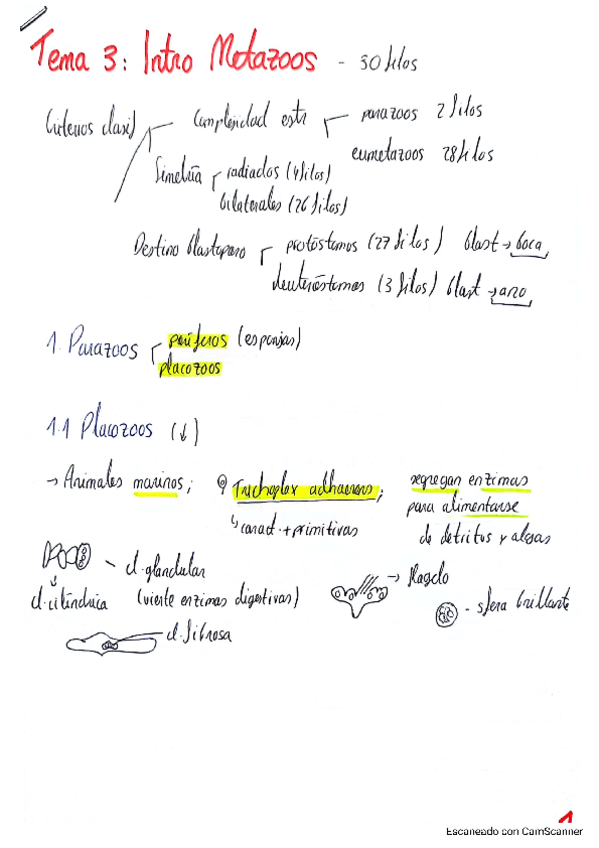 Tema 3: Intro Metazoos - 30 filos
Criterios clasif
Complejidad estr
parazoos 2 filos
eumetazoos 28 filos
Simetría
radiados (4 filos)
bilaterales (26 filos)
Destino blastoporo
protóstomos (27 filos) blast → boca
deuteróstomos (3 filos) blast → ano
1. Parazoos
poríferos (esponjas)
placozoos
1.1 Placozoos (↓)
→ Animales marinos; Trichoplax adhaerens;
↳ caract. + primitivas
segregan enzimas
para alimentarse
de detritos y algas
cl. glandular
(vierte enzimas digestivas)
cl. cilíndrica
→ flagelo
- sfera brillante
cl. fibrosa
1
Escaneado con CamScanner